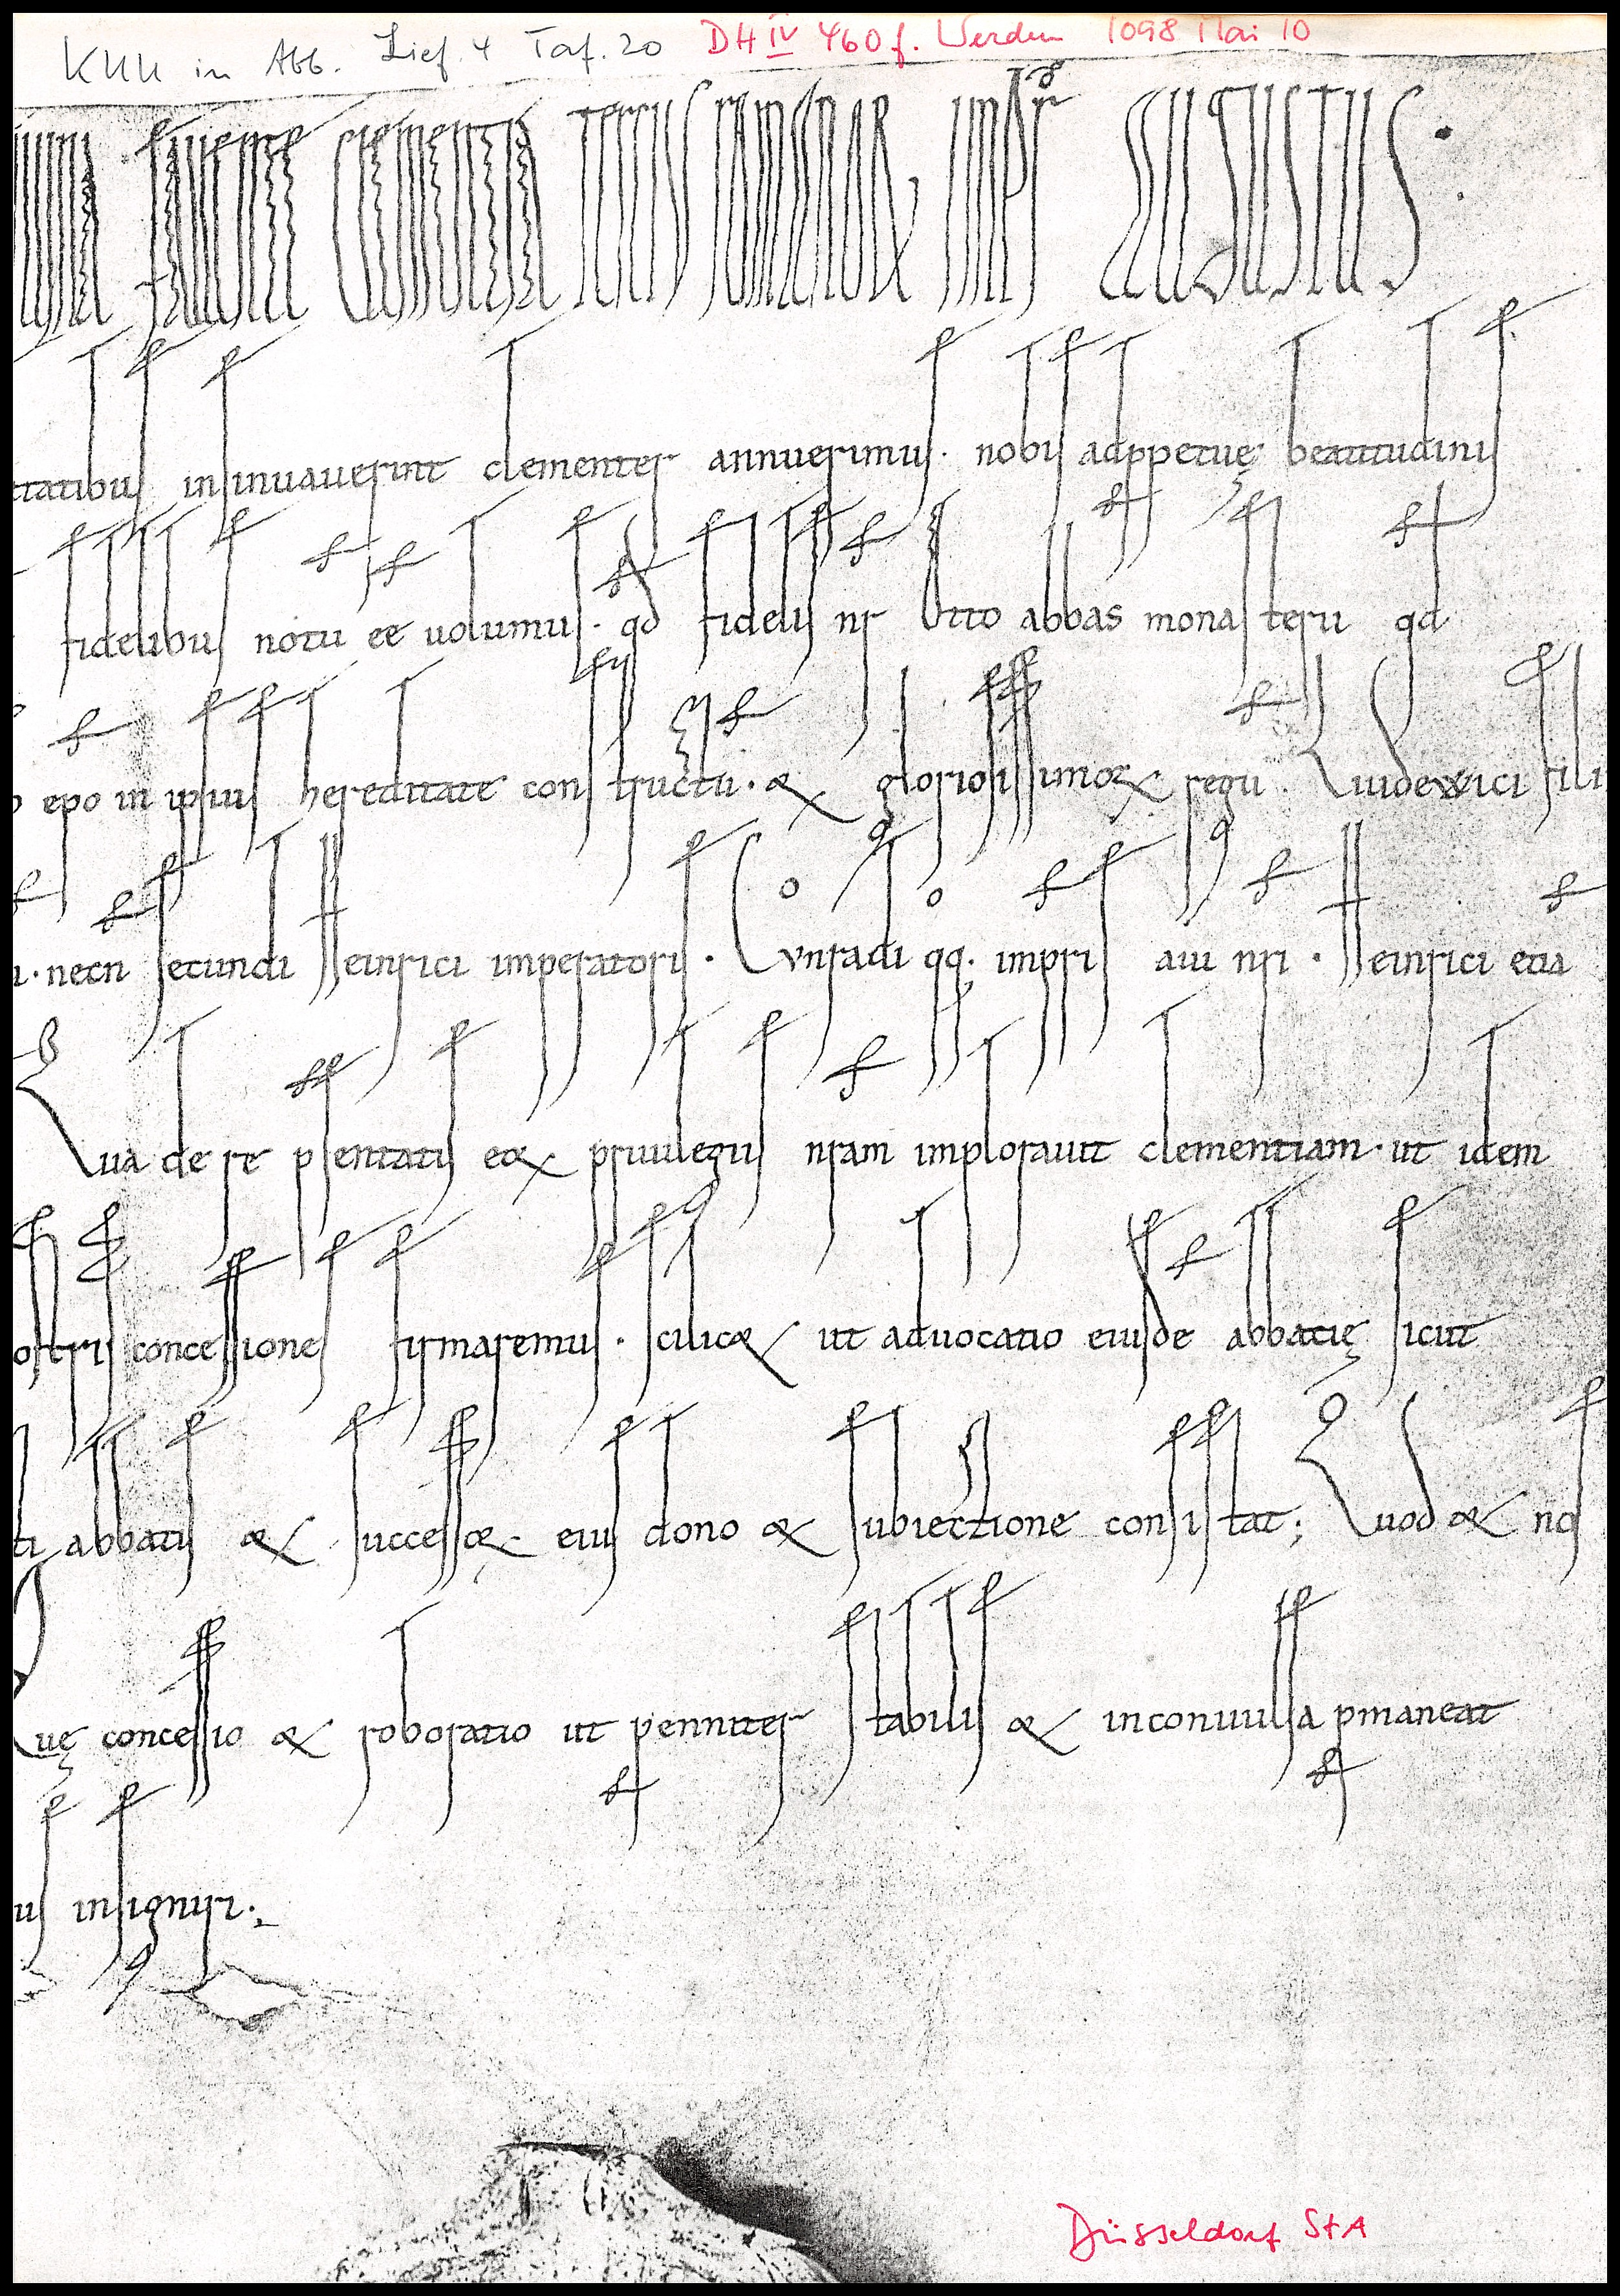 KUU in Abb. Lief. 4 Taf. 20 DH IV 460 f. Werden 1098 Mai 10
fauente clementia tercius romanor imptr augustus.
tatibus insinuauerint clementer annuerimus. nobis ad ppetuę beatitudinis
fidelibus notu ee uolumus. qd fidelis nr Otto abbas monasterii qd
epo in ipsius hereditate constructu. & gloriosissimor regu. Luidewici fili
necn secundi Heinrici imperatoris. Cvnradi qq. impris aui nri. Heinrici etia
Qua de re psentatis eor priuilegiis nram implorauit clementiam. ut idem
ostris concessiones firmaremus. scilicet ut aduocatio eiusde abbatię sicut
ti abbatis & success. eius dono & subiectione consistat; Quod & nos
Quę concessio & roboratio ut penniter stabilis & inconuulsa pmaneat
us insigniri.
Düsseldorf StA